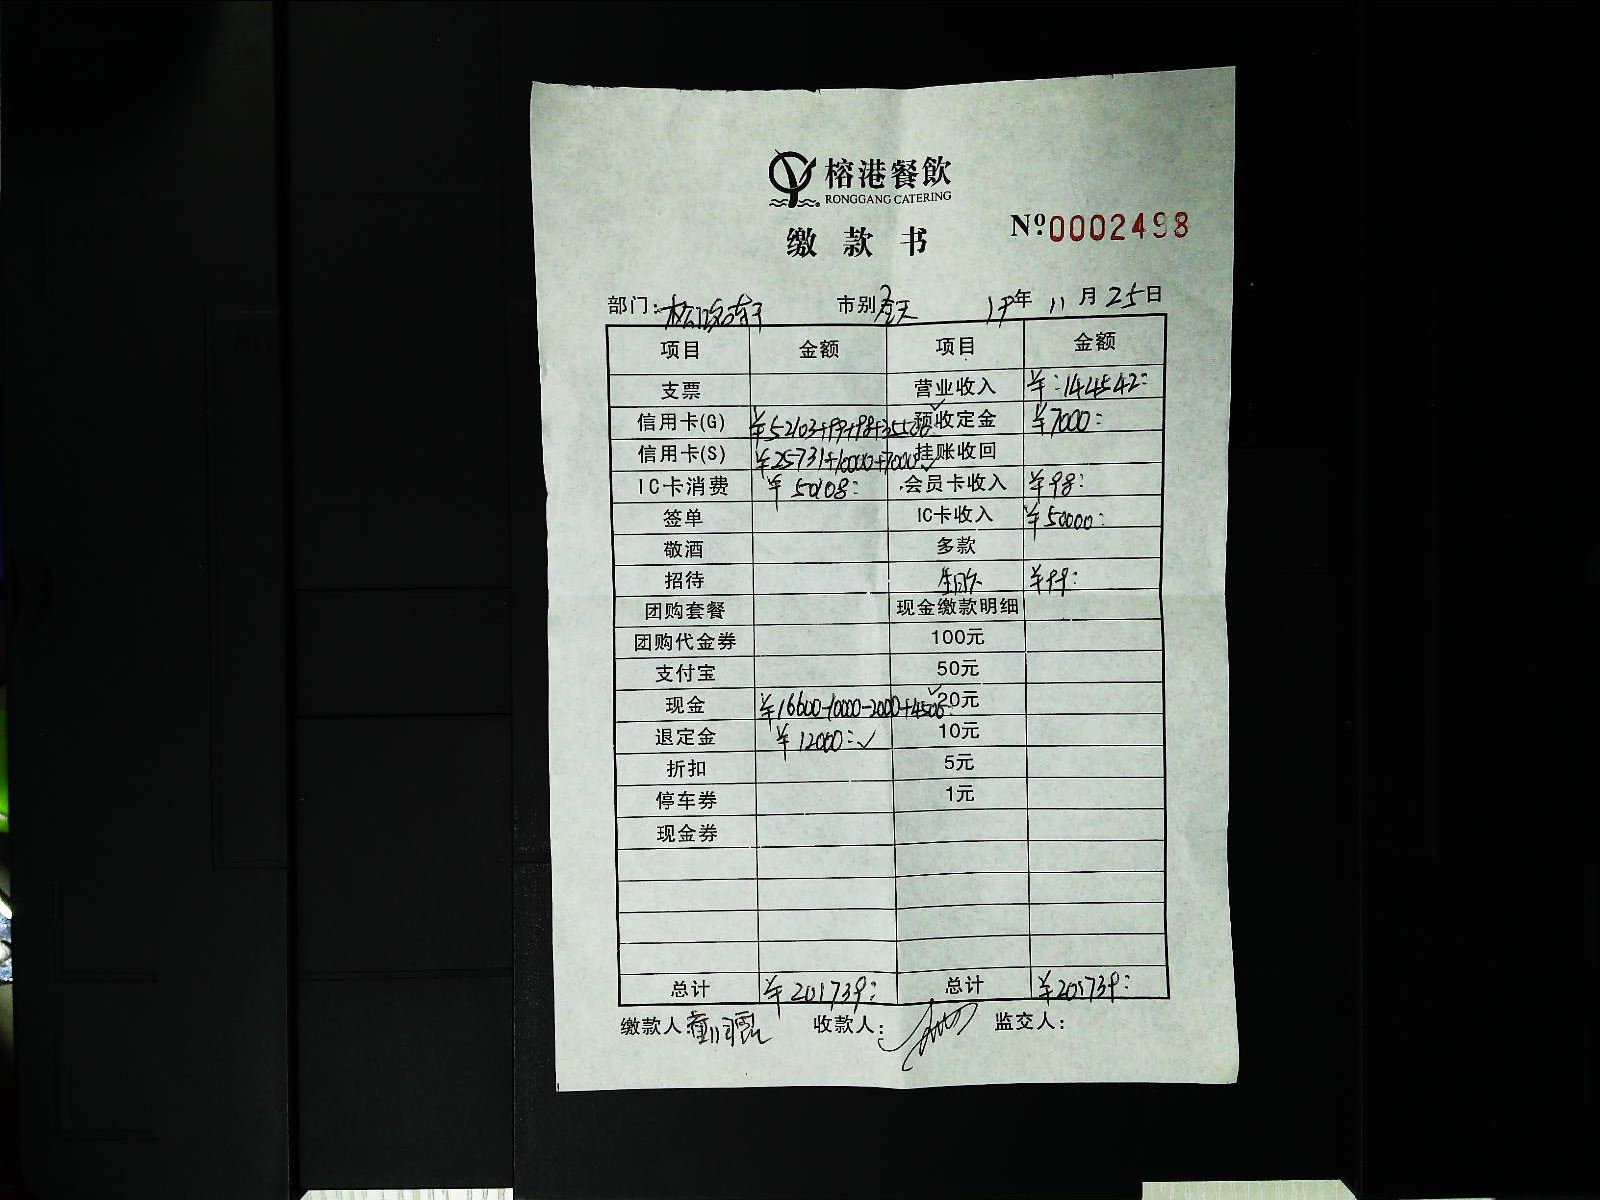 榕港餐飲
RONGGANG CATERING
缴款书
Nº0002498
部门: 市别 全天 19年 11月 25日
项目 金额 项目 金额
支票 营业收入 ¥:144542:
信用卡(G) ¥52103+99+98+35500 预收定金 ¥7000:
信用卡(S) ¥25731+10000+7000 挂账收回
IC卡消费 ¥50108: 会员卡收入 ¥98:
签单 IC卡收入 ¥50000:
敬酒 多款
招待 ¥99:
团购套餐 现金缴款明细
团购代金券 100元
支付宝 50元
现金 ¥16600-10000-2000+4500 20元
退定金 ¥12000:✓ 10元
折扣 5元
停车券 1元
现金券
总计 ¥201739: 总计 ¥201739:
缴款人: 收款人: 监交人: